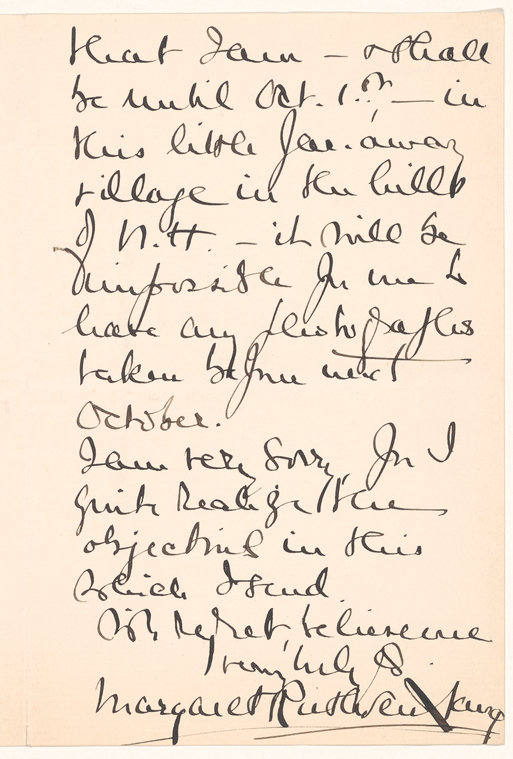 that I am – & shall
be until Oct. 1st – in
this little far-away
village in the hills
of N.H. – it will be
impossible for me to
have any photographs
taken before next
October.
I am very sorry, for I
quite realize the
objections in this
which I send.
With regret, believe me
very truly yrs.
Margaret Ruthven Lang